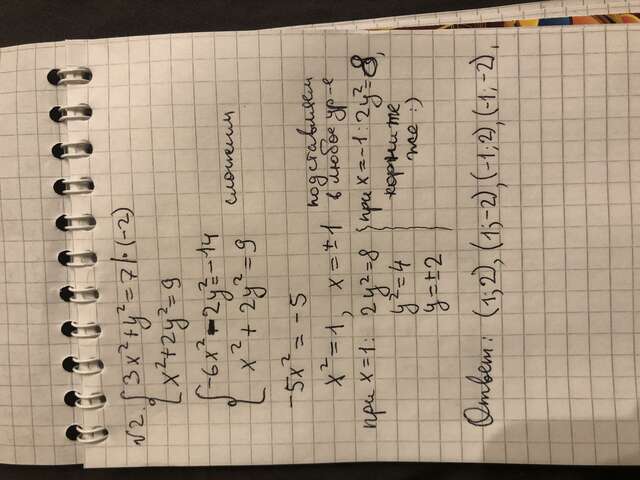 √2. { 3x²+y²=7 |·(-2)
x²+2y²=9
{ -6x²-2y²=-14
x²+2y²=9 сложим
-5x²=-5
x²=1, x=±1 подставляем в любое ур-е
при x=1: 2y²=8 } при x=-1: 2y²=8,
y²=4 корни те
y=±2 же :)
Ответ: (1;2), (1;-2), (-1;2), (-1;-2).